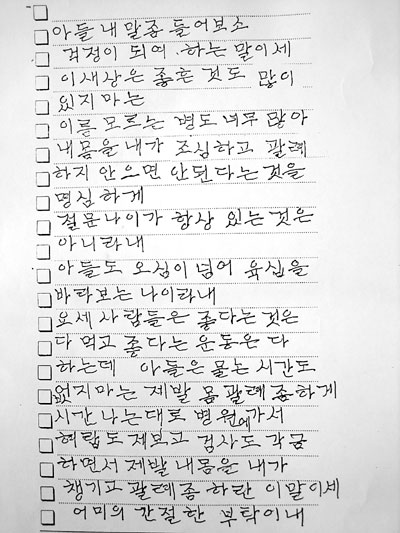 아들 내말좀 들어보소
걱정이 되여 하는 말이세
이새상은 좋흔 것도 많이
있지마는
이름 모르는 병도 너무 많아
내몸을 내가 조심하고 괄례
하지 안으면 안된다는 것을
명심하게
절문나이가 항상 있는 것은
아니라내
아들도 오십이 넘어 육십을
바라보는 나이라내
요세 사람들은 좋다는 것은
다 먹고 좋다는 운동은 다
하는데 아들은 물는 시간도
없지마는 제발 몸 괄례좀하게
시간 나는대로 병원에가서
혀랍도 제보고 검사도 각금
하면서 제발 내몸은 내가
챙기고 괄례좀 하란 이말이세
어미의 간절한 부탁이내